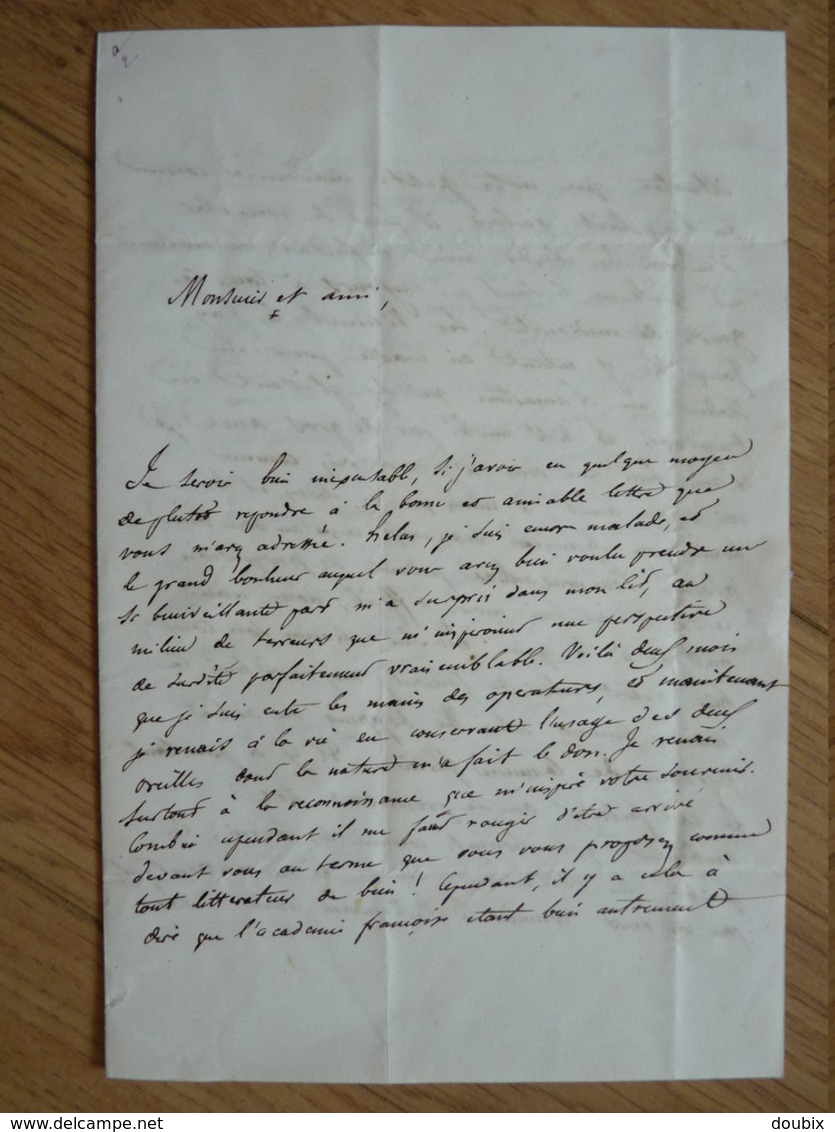 Monsieur et ami,
Je serois bien inexcusable, si j'avois eu quelque moyen
de plutot repondre à la bonne et aimable lettre que
vous m'avez adressée. helas, je suis encor malade, et
le grand bonheur auquel vous avez bien voulu prendre une
si bienveillante part m'a surpris dans mon lit, au
milieu de terreurs que m'inspiroient une perspective
de surdité parfaitement vraisemblable. Voilà deux mois
que je suis entre les mains des operateurs, et maintenant
je renais à la vie en conservant l'usage des deux
oreilles dont la nature m'a fait le don. Je renais
surtout à la reconnoissance que m'inspire votre souvenir.
Combien cependant il me faut rougir d'etre arrivé
devant vous au terme que vous vous proposez comme
tout litterateur de bien! Cependant, il y a cela à
dire que l'academie françoise etant bien autrement
www.delcampe.net
doubix